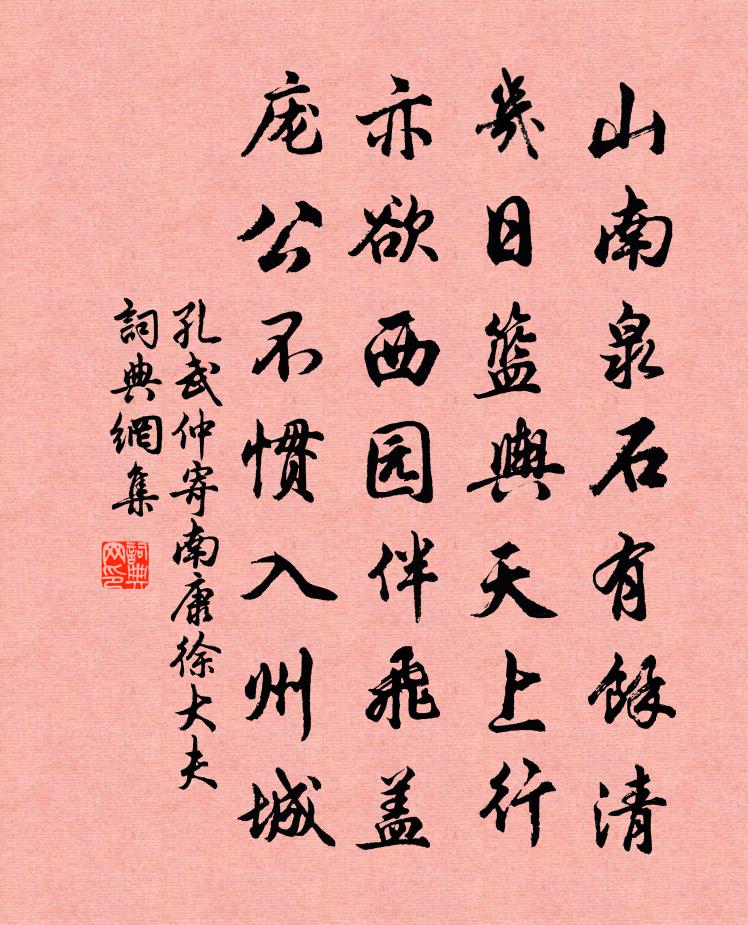 山南泉石有餘清
幾日籃輿天上行
亦欲西园伴飛盖
庞公不惯入州城
孔武仲寄南康徐大夫
詞典網集
詞典网印